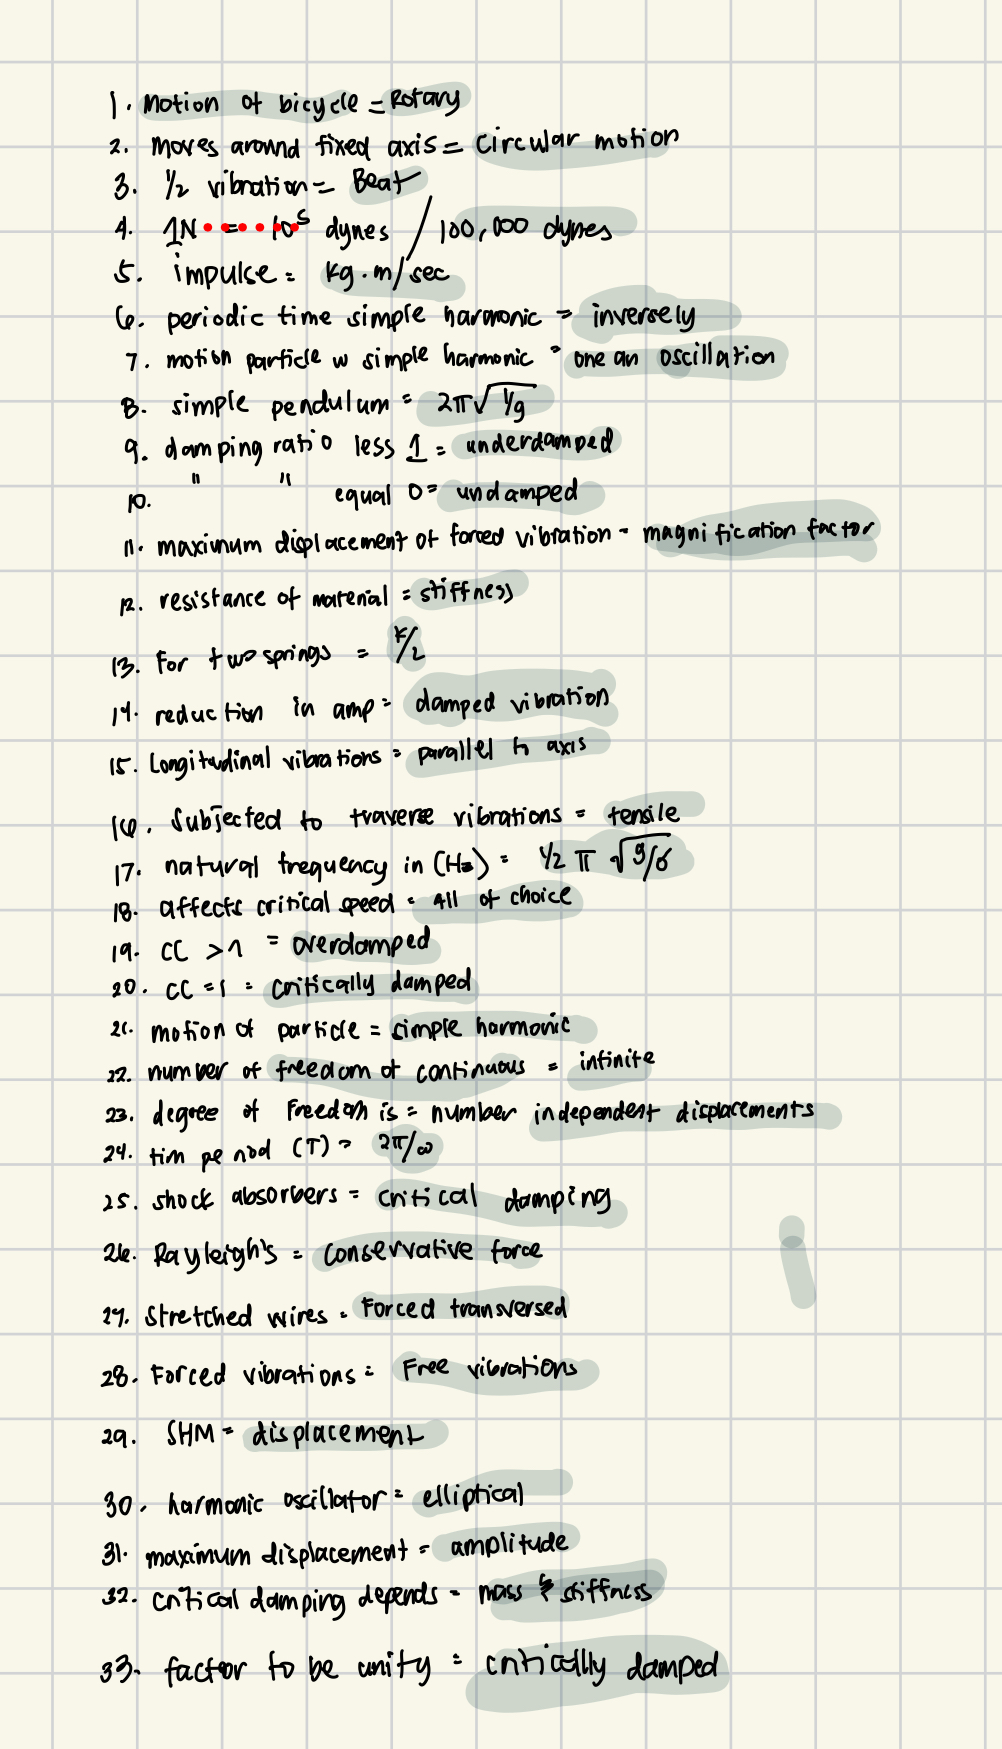 1. Motion of bicycle = Rotary
2. moves around fixed axis = circular motion
3. 1/2 vibration = Beat
4. 1N = 10^5 dynes / 100,000 dynes
5. impulse = kg·m/sec
6. periodic time simple harmonic = inversely
7. motion particle w simple harmonic = one an oscillation
8. simple pendulum = 2π√1/g
9. damping ratio less 1 = underdamped
10. " " equal 0 = undamped
11. maximum displacement of forced vibration = magnification factor
12. resistance of material = stiffness
13. For two springs = k/2
14. reduction in amp = damped vibration
15. Longitudinal vibrations = parallel to axis
16. Subjected to traverse vibrations = tensile
17. natural frequency in (Hz) = 1/2 π √g/σ
18. affects critical speed = All of choice
19. CC > 1 = overdamped
20. CC = 1 = critically damped
21. motion of particle = simple harmonic
22. number of freedom of continuous = infinite
23. degree of Freedom is = number independent displacements
24. tim period (T) = 2π/ω
25. shock absorbers = critical damping
26. Rayleigh's = Conservative force
27. Stretched wires = Forced transversed
28. Forced vibrations = Free vibrations
29. SHM = displacement
30. harmonic oscillator = elliptical
31. maximum displacement = amplitude
32. critical damping depends = mass & stiffness
33. factor to be unity = critically damped